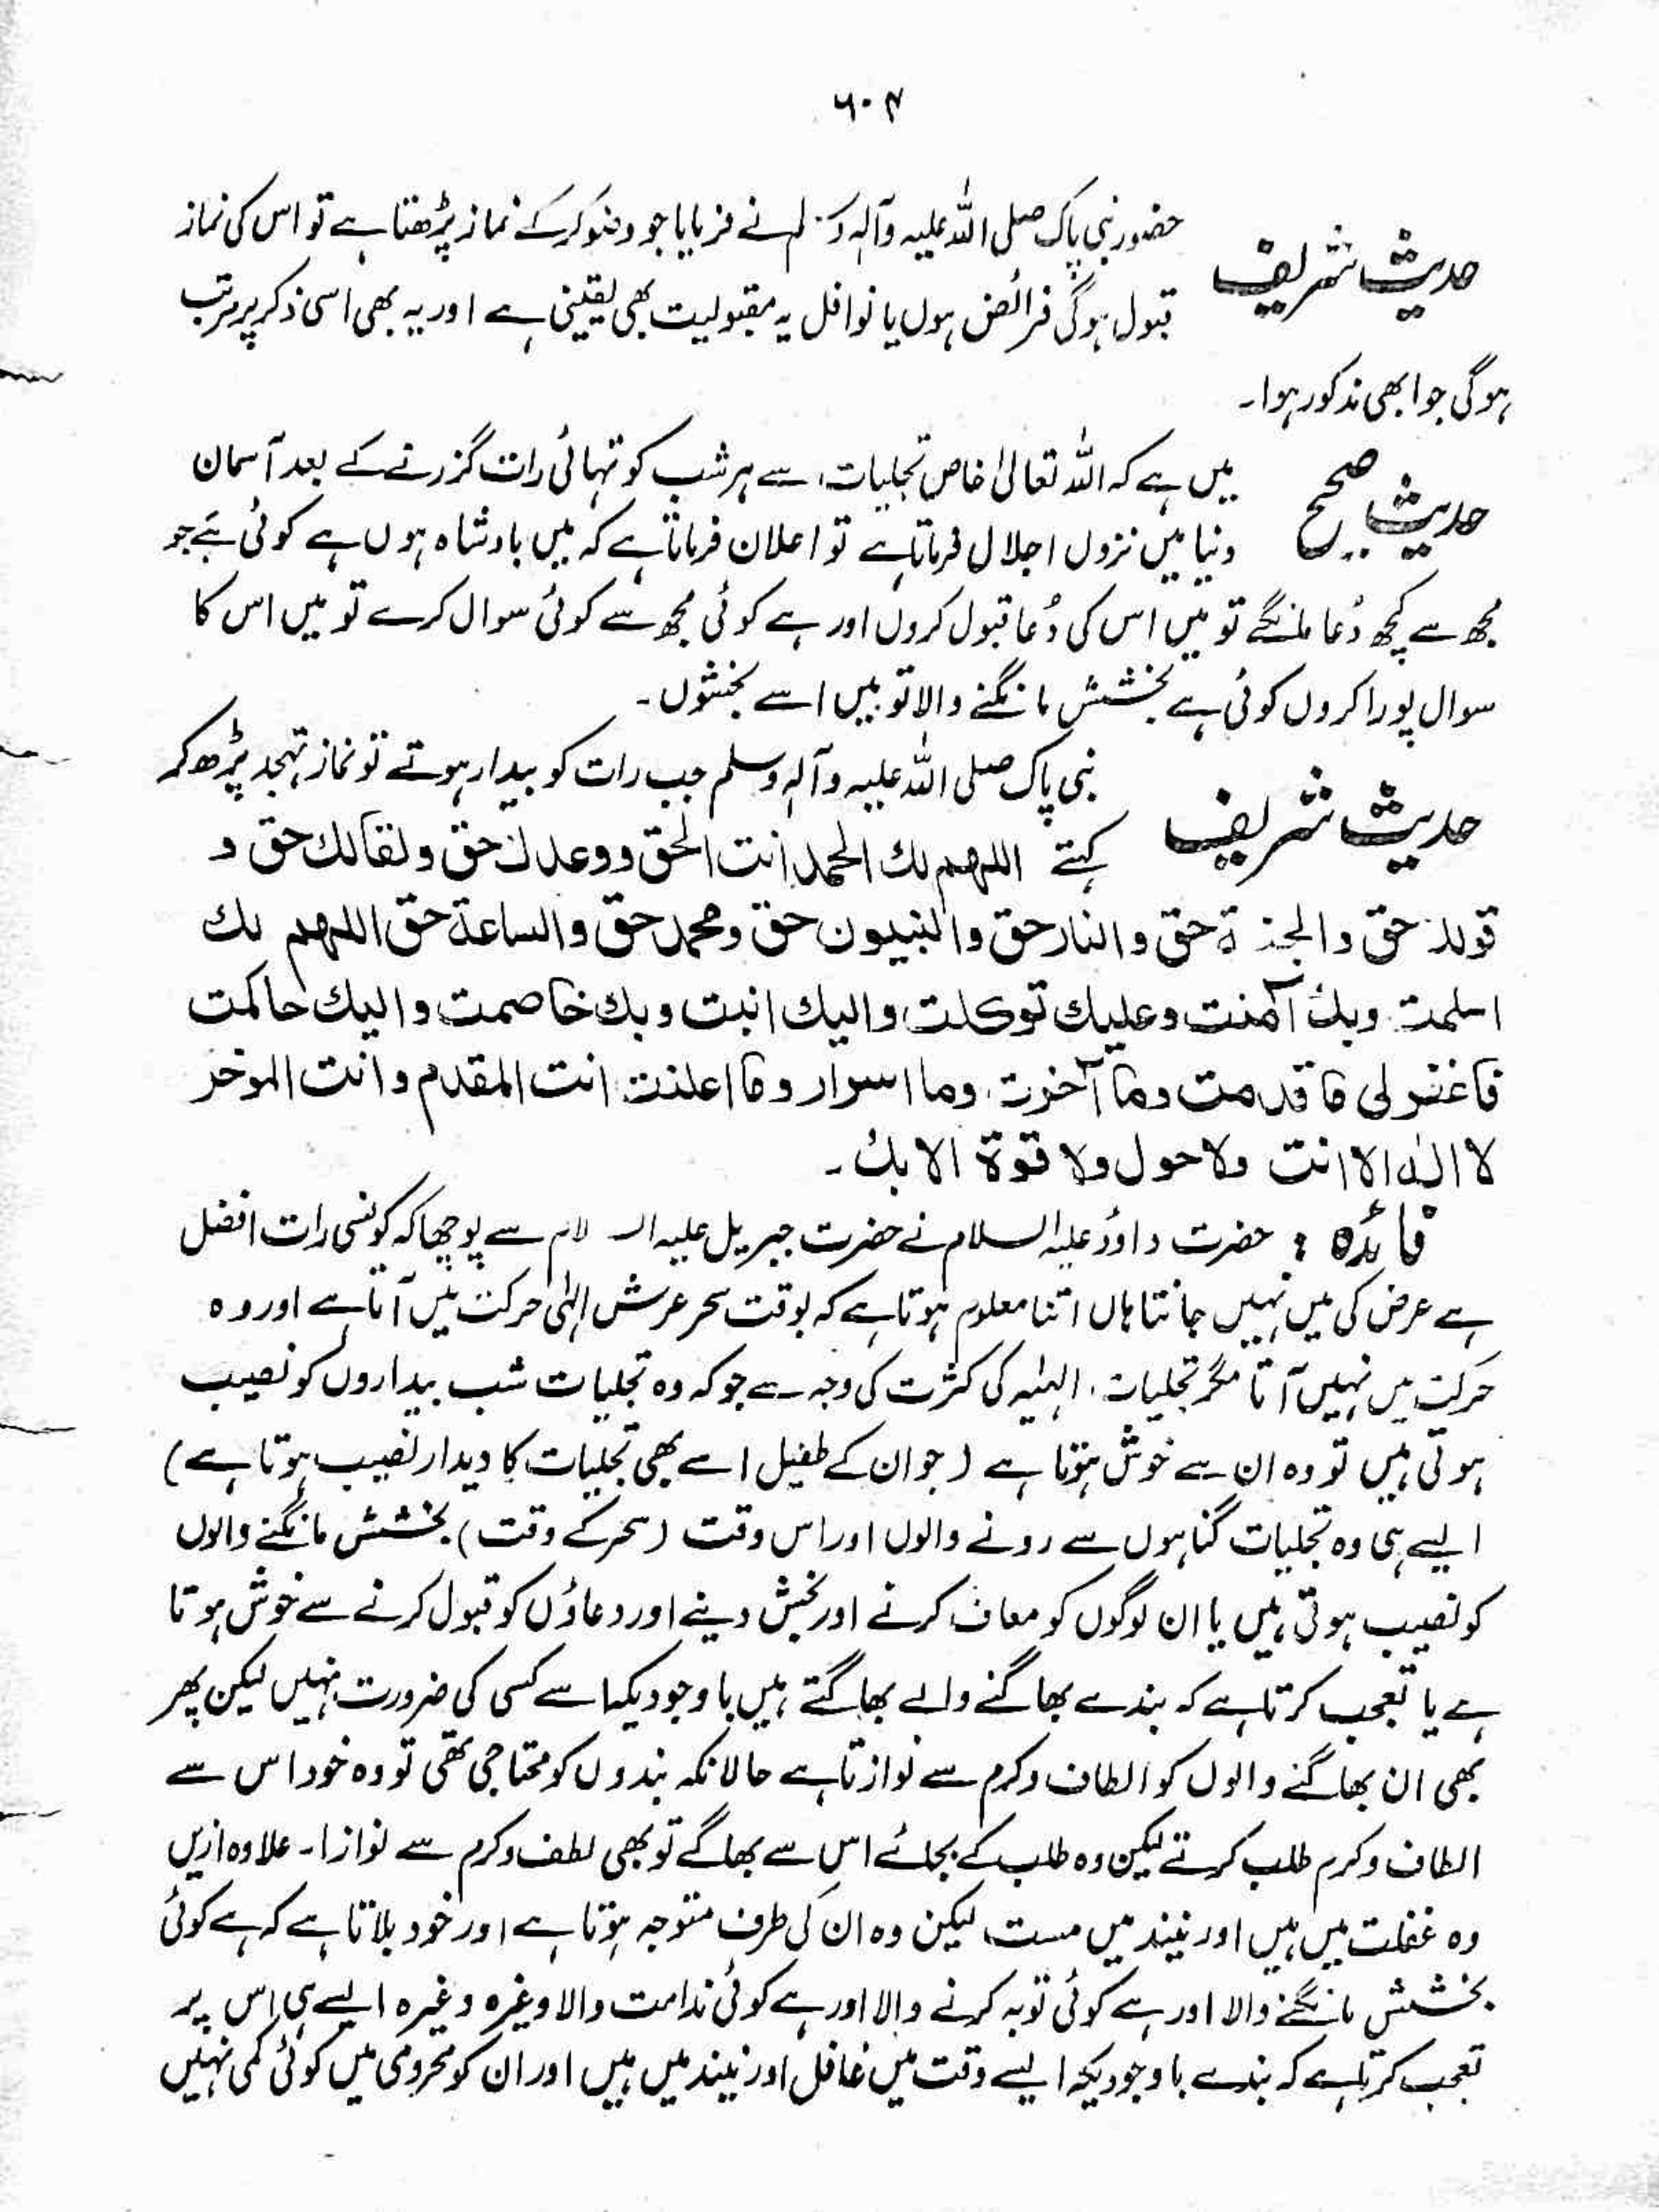 ۶۰۴
حدیث شریف حضور نبی پاک صلی اللہ علیہ وآلہ لم نے فرمایا جو وضو کرکے نماز پڑھتا ہے تو اس کی نماز
قبول ہوگی فرائض ہوں یا نوافل یہ مقبولیت بھی یقینی ہے اور یہ بھی اسی ذکر پر مرتب
ہوگی جو ابھی مذکور ہوا۔
حدیث صحیح میں ہے کہ اللہ تعالیٰ خاص تجلیات سے ہر شب کو تہائی رات گزرنے کے بعد آسمان
دنیا میں نزول اجلال فرماتا ہے تو اعلان فرماتا ہے کہ میں بادشاہ ہوں ہے کوئی ہے جو
مجھ سے کچھ دُعا مانگے تو میں اس کی دُعا قبول کروں اور ہے کوئی مجھ سے کوئی سوال کرے تو میں اس کا
سوال پورا کروں کوئی ہے بخشش مانگنے والا تو میں اسے بخشوں۔
حدیث شریف نبی پاک صلی اللہ علیہ وآلہ وسلم جب رات کو بیدار ہوتے تو نماز تہجد پڑھ کر
کہتے اللہم لك الحمد انت الحق ووعدك حق ولقالك حق و
قولك حق والجنة حق والنار حق والنبيون حق ومحمد حق والساعة حق اللهم لك
اسلمت وبك آمنت وعليك توكلت واليك انبت وبك خاصمت واليك حاكمت
فاغفرلى ما قدمت وما آخرت وما اسرار وما اعلنت انت المقدم وانت الموخر
لا الٰه الا انت ولا حول ولا قوة الا بك۔
فائدہ : حضرت داؤد علیہ السلام نے حضرت جبریل علیہ السلام سے پوچھا کہ کونسی رات افضل
ہے عرض کی میں نہیں جانتا ہاں اتنا معلوم ہوتا ہے کہ بوقت سحر عرش الہٰی حرکت میں آتا ہے اور وہ
حرکت میں نہیں آتا مگر تجلیات الہٰیہ کی کثرت کی وجہ سے جو کہ وہ تجلیات شب بیداروں کو نصیب
ہوتی ہیں تو وہ ان سے خوش ہوتا ہے (جو ان کے طفیل اسے بھی تجلیات کا دیدار نصیب ہوتا ہے)
ایسے ہی وہ تجلیات گناہوں سے رونے والوں اور اس وقت (سحر کے وقت) بخشش مانگنے والوں
کو نصیب ہوتی ہیں یا ان لوگوں کو معاف کرنے اور بخش دینے اور دعاؤں کو قبول کرنے سے خوش ہوتا
ہے یا تعجب کرتا ہے کہ بندے بھاگنے والے بھاگتے ہیں باوجودیکہ اسے کسی کی ضرورت نہیں لیکن پھر
بھی ان بھاگنے والوں کو الطاف وکرم سے نوازتا ہے حالانکہ بندوں کو محتاجی تھی تو وہ خود اس سے
الطاف وکرم طلب کرتے لیکن وہ طلب کے بجائے اس سے بھاگے تو بھی لطف وکرم سے نوازا۔ علاوہ ازیں
وہ غفلت میں ہیں اور نیند میں مست لیکن وہ ان کی طرف متوجہ ہوتا ہے اور خود بلاتا ہے کہ ہے کوئی
بخشش مانگنے والا اور ہے کوئی توبہ کرنے والا اور ہے کوئی ندامت والا وغیرہ وغیرہ ایسے ہی اس پر
تعجب کرتا ہے کہ بندے باوجودیکہ ایسے وقت میں غافل اور نیند میں ہیں اور ان کو محرومی میں کوئی کمی نہیں